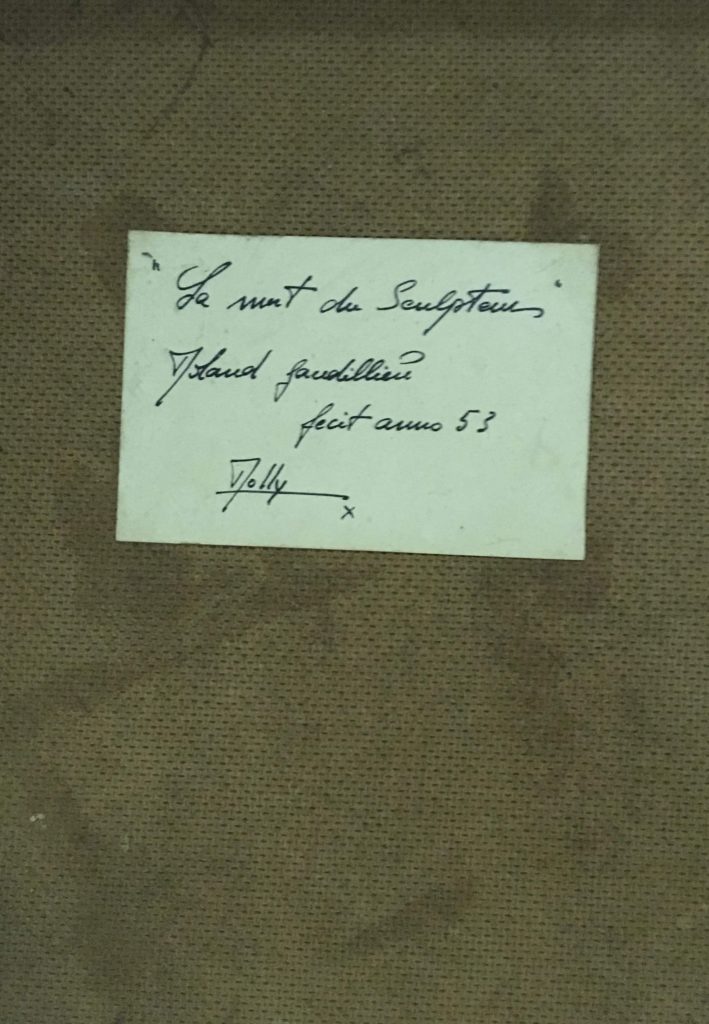 "La mort du Sculpteur"
gaudillière
fecit anno 53
Molly
x